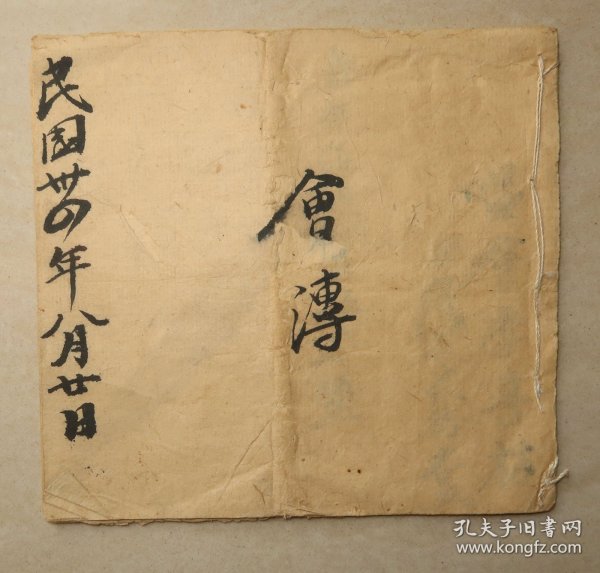 會溥
民國卅四年八月廿日
孔夫子旧書网
www.kongfz.com